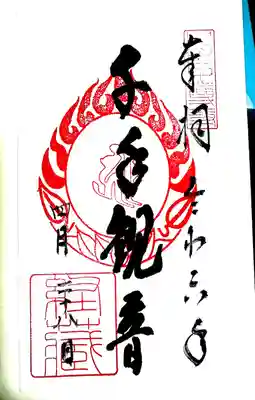 奉拝
令和六年
千手観音
四月
二十八日